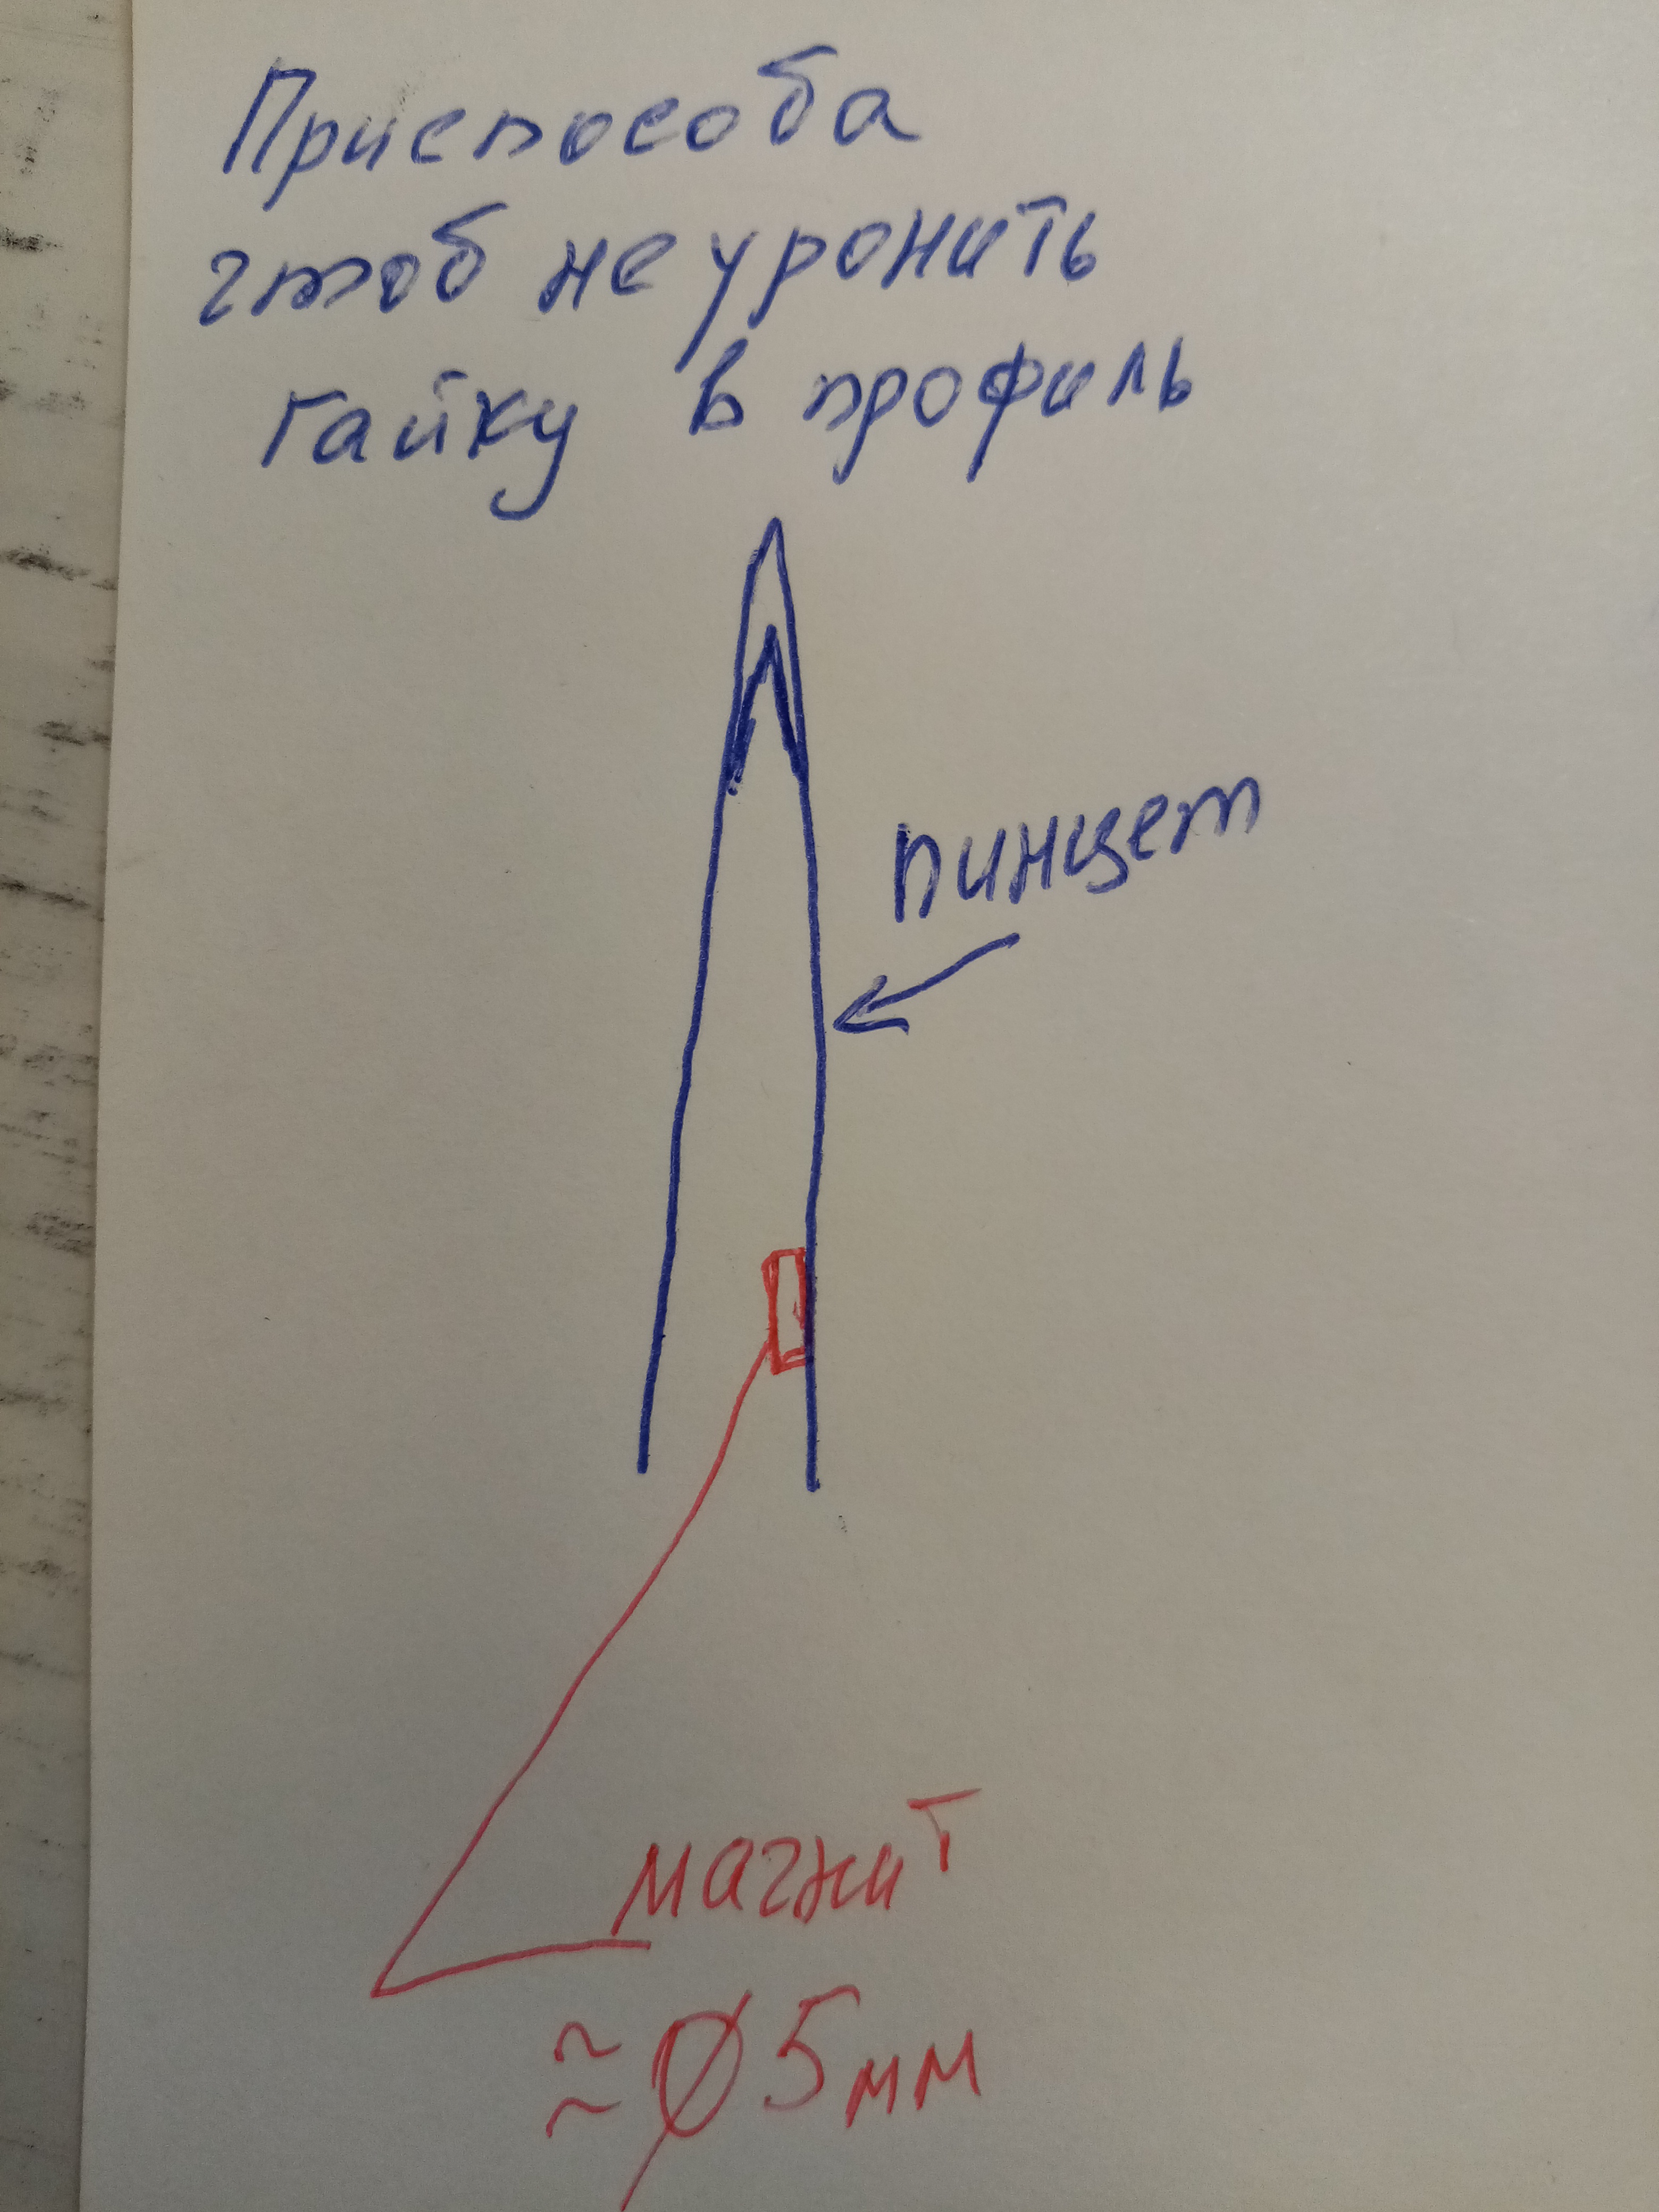 Приспособа
чтоб не уронить
гайку в профиль
пинцет
магнит
≈ Ø 5 мм